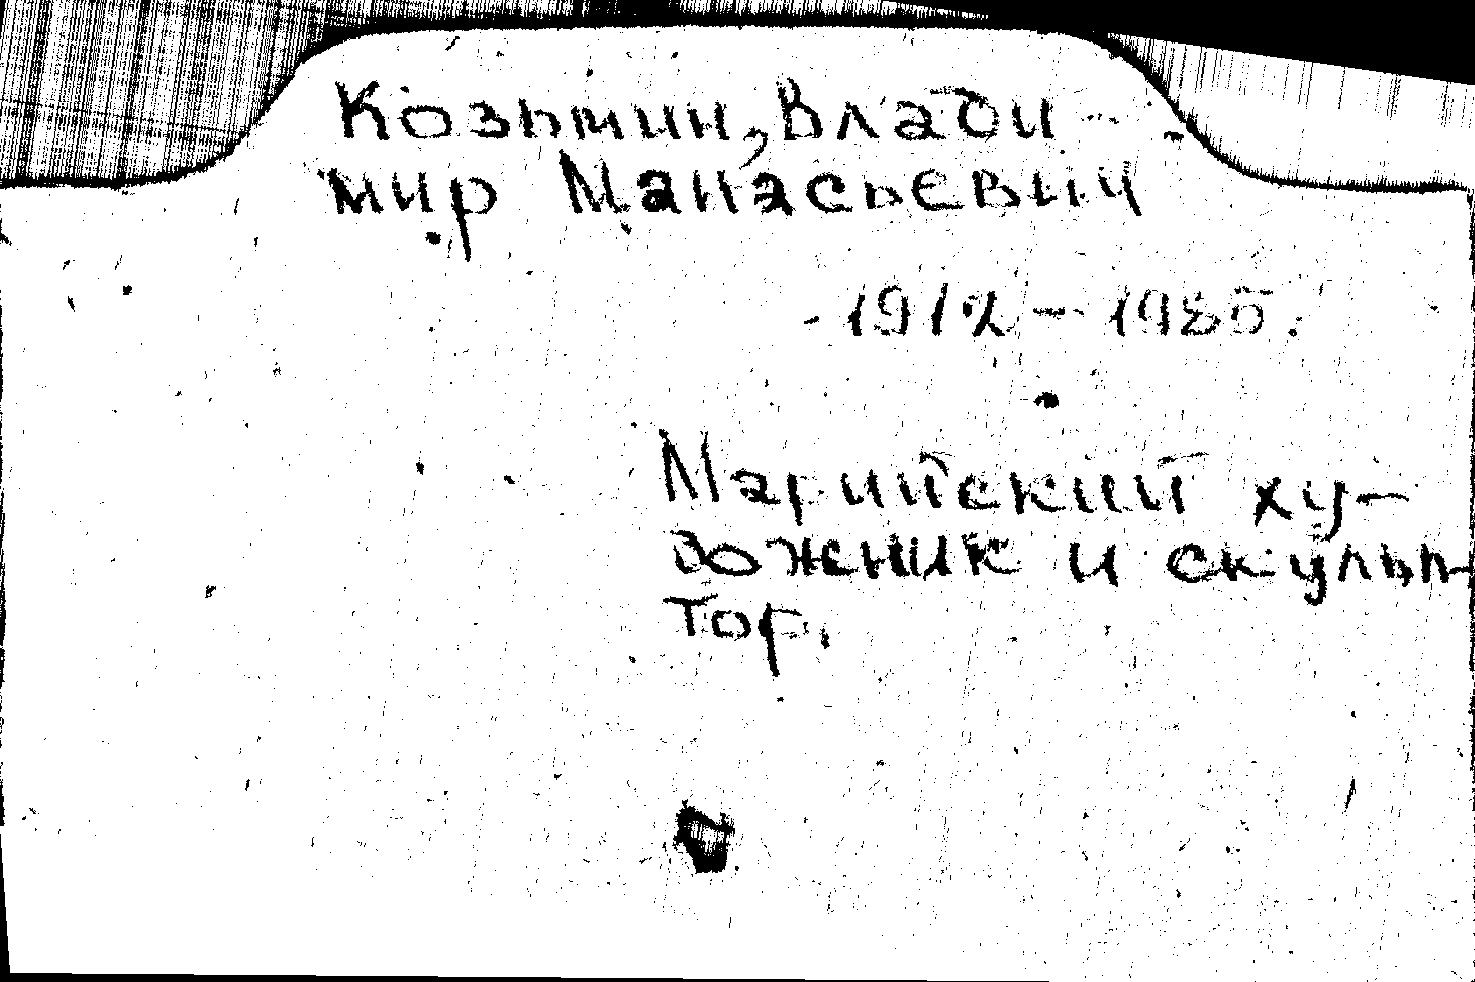 Козьмин, Влади-
мир Манасьевич
1912 - 1985.
Марийский ху-
дожник и скульп-
тор.